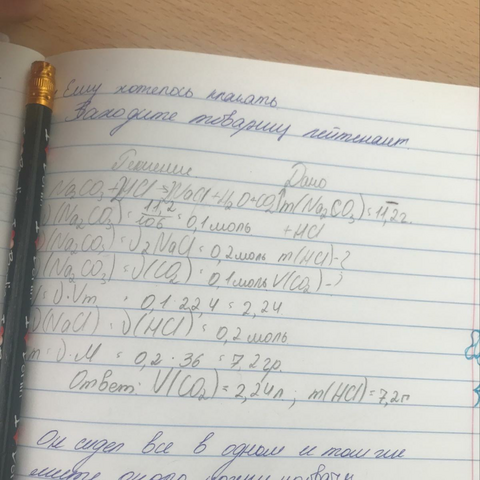 Ему хотелось плакать
Заходите товарищ лейтенант.
Решение Дано
Na2CO3 + 2HCl = 2NaCl + H2O + CO2↑ m(Na2CO3) = 11,2г.
υ(Na2CO3) = 11,2/106 = 0,1 моль +HCl
υ(Na2CO3) = υ2NaCl = 0,2 моль m(HCl) - ?
(Na2CO3) = υ(CO2) = 0,1 моль V(CO2) - ?
V = υ · Vm = 0,1 · 22,4 = 2,24
υ(NaCl) = υ(HCl) = 0,2 моль
m = υ · M = 0,2 · 36 = 7,2 гр.
Ответ: V(CO2) = 2,24л ; m(HCl) = 7,2г
Он сидел все в одном и том же
месте около